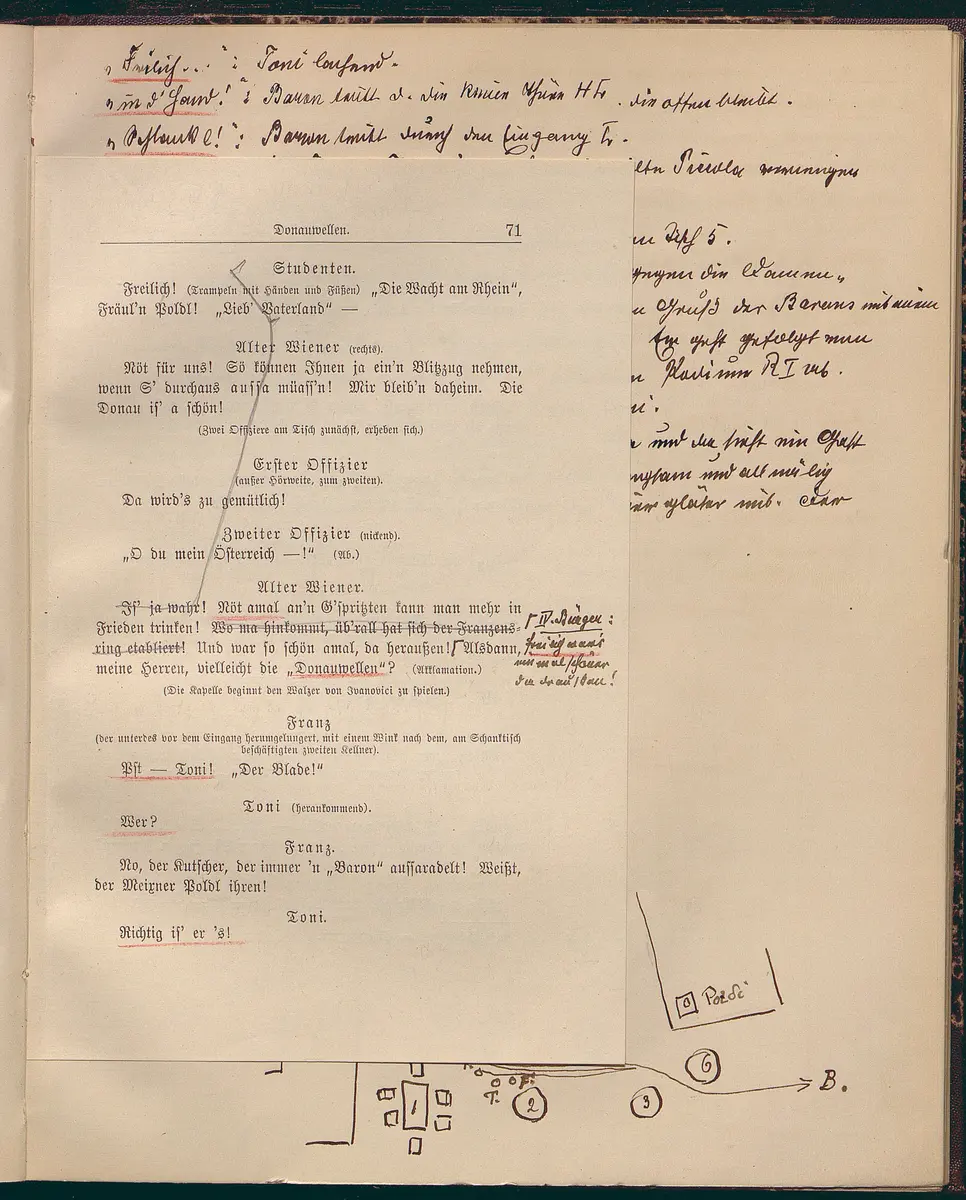 „Freilich...": Toni lachend.
„in d' Hand!": Baron tritt d. die kleine Thüre H Tr. die offen bleibt.
„Schlankl!": Baron tritt durch den Eingang Tr.
Piccolo
Donauwellen. 71
Tisch 5.
Studenten.
gegen die Damen,
Freilich! (Trampeln mit Händen und Füßen) „Die Wacht am Rhein",
Fräul'n Poldl! „Lieb' Vaterland" —
Gruß des Barons mit einem
Er geht gefolgt von
Alter Wiener (rechts).
Nöt für uns! Sö können Ihnen ja ein'n Blitzzug nehmen,
Podium R I ab.
wenn S' durchaus aussa müass'n! Mir bleib'n daheim. Die
Donau is' a schön!
(Zwei Offiziere am Tisch zunächst, erheben sich.)
und da sieht ein Gast
Erster Offizier
und allmälig
(außer Hörweite, zum zweiten).
Da wird's zu gemütlich!
gläser mit. Der
Zweiter Offizier (nickend).
„O du mein Österreich —!" (Ab.)
Alter Wiener.
Is' ja wahr! Nöt amal an'n G'spritzten kann man mehr in
Frieden trinken! Wo ma hinkommt, üb'rall hat sich der Franzens-
ring etabliert! Und war so schön amal, da heraußen! Γ Alsdann,
meine Herren, vielleicht die „Donauwellen"? (Akklamation.)
Γ IV. Bürger:
freilich war's
amal schöner
da draußen!
(Die Kapelle beginnt den Walzer von Ivanovici zu spielen.)
Franz
(der unterdes vor dem Eingang herumgelungert, mit einem Wink nach dem, am Schanktisch
beschäftigten zweiten Kellner).
Pst — Toni! „Der Blade!"
Toni (herankommend).
Wer?
Franz.
No, der Kutscher, der immer 'n „Baron" aussaradelt! Weißt,
der Meixner Poldl ihren!
Toni.
Richtig is' er 's!
Poldi
6
B.
T. F.
1 2 3